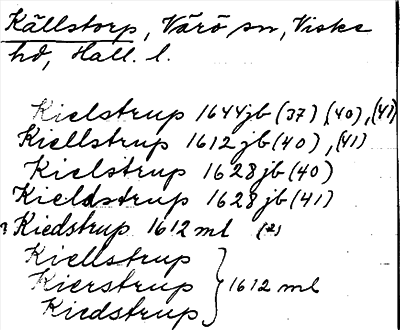 Källstorp, Värö sn, Viske
hd, Hall. l.
Kielstrup 1644 jb (37) (40), (41)
Kiellstrup 1612 jb (40), (41)
Kielstrup 1628 jb (40)
Kieldstrup 1628 jb (41)
? Kiedstrup 1612 ml (2)
Kiellstrup
Kierstrup } 1612 ml
Kiedstrup